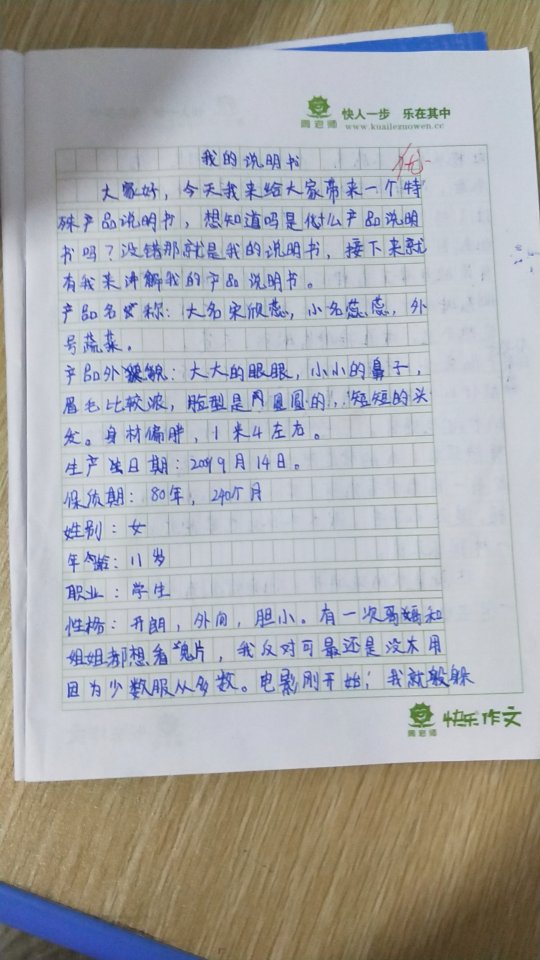 周老师
快人一步 乐在其中
www.kuailezuowen.cc
我的说明书
优
大家好，今天我来给大家带来一个特
殊产品说明书，想知道吗是什么产品说明
书吗？没错那就是我的说明书，接下来就
有我来讲解我的产品说明书。
产品名称：大名宋欣蕊，小名蕊蕊，外
号蔬菜。
产品外貌：大大的眼眼，小小的鼻子，
眉毛比较浓，脸型是圆圆的，短短的头
发。身材偏胖，1米4左右。
生产日期：2009月14日。
保质期：80年，240个月
姓别：女
年龄：11岁
职业：学生
性格：开朗，外向，胆小。有一次哥哥和
姐姐都想看"鬼片，我反对可最还是没木用
因为少数服从多数。电影刚开始；我就般躲
周老师
快乐作文